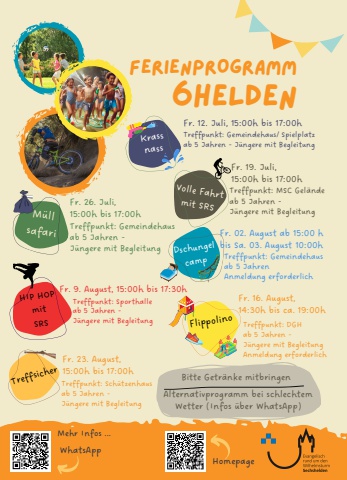 FERIENPROGRAMM
6HELDEN
Krass
nass
Fr. 12. Juli, 15:00h bis 17:00h
Treffpunkt: Gemeindehaus/ Spielplatz
ab 5 Jahren - Jüngere mit Begleitung
Volle Fahrt
mit SRS
Fr. 19. Juli,
15:00h bis 17:00h
Treffpunkt: MSC Gelände
ab 5 Jahren -
Jüngere mit Begleitung
Müll
safari
Fr. 26. Juli,
15:00h bis 17:00h
Treffpunkt: Gemeindehaus
ab 5 Jahren -
Jüngere mit Begleitung
Dschungel
camp
Fr. 02. August ab 15:00 h
bis Sa. 03. August 10:00h
Treffpunkt: Gemeindehaus
ab 5 Jahren
Anmeldung erforderlich
HIP HOP
mit
SRS
Fr. 9. August, 15:00h bis 17:30h
Treffpunkt: Sporthalle
ab 5 Jahren -
Jüngere mit Begleitung
Flippolino
Fr. 16. August,
14:30h bis ca. 19:00h
Treffpunkt: DGH
ab 5 Jahren -
Jüngere mit Begleitung
Anmeldung erforderlich
Treffsicher
Fr. 23. August,
15:00h bis 17:00h
Treffpunkt: Schützenhaus
ab 5 Jahren -
Jüngere mit Begleitung
Bitte Getränke mitbringen
Alternativprogramm bei schlechtem
Wetter (Infos über WhatsApp)
Mehr Infos ...
WhatsApp
Homepage
Evangelisch
rund um den
Wilhelmsturm
Sechshelden